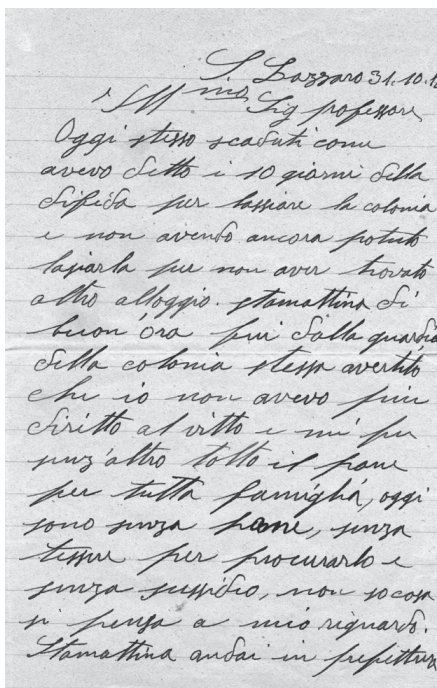 S. Lazzaro 31.10.1
Ill mo Sig professore
Oggi stesso scaduti come
avevo detto i 10 giorni della
difida per lassiare la colonia
e non avendo ancora potuto
lasiarla per non aver trovato
altro alloggio. stamattina di
buon'ora fui dalla guardia
della colonia stessa avertito
che io non avevo più
diritto al vitto e mi fu
senz'altro tolto il pane
per tutta famiglia, oggi
sono senza pane, senza
tessere per procurarlo e
senza sussidio, non so cosa
si pensa a mio riguardo.
Stamattina andai in prefettura